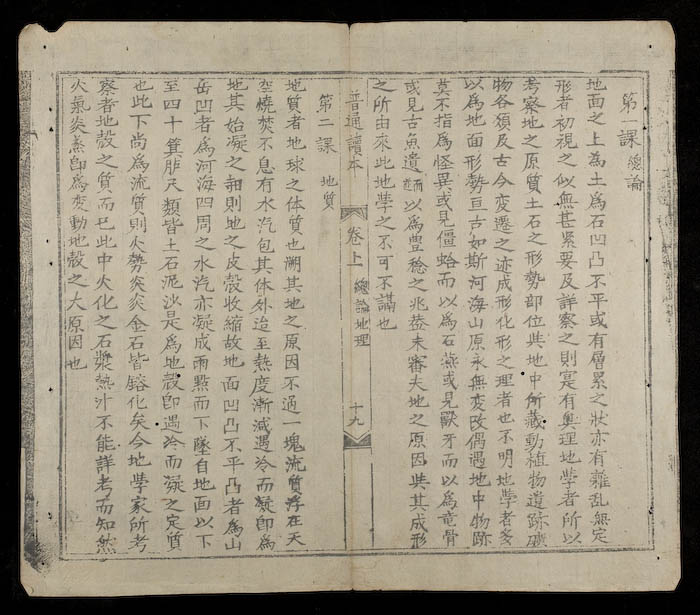 第一課 總論
地面之上為土為石凹凸不平或有層累之狀亦有雜乱無定
形者初視之似無甚紧要及詳察之則寔有奥理地學者所以
考察地之原質土石之形勢部位與地中所藏動植物遺跡礦
物各類及古今变遷之迹成形化形之理者也不明地學者多
以為地面形勢亘古如斯河海山原永無变改偶遇地中物跡
莫不指為怪異或見僵蛤而以為石燕或見獸牙而以為竜骨
或見古魚遺麵以為豊稔之兆益未審夫地之原因與其成形
之所由來此地學之不可不講也
普通讀本 卷上 總論地理 十九
第二課 地質
地質者地球之体質也溯其地之原因不過一塊流質浮在天
空燒焚不息有水汽包其体外迨至熱度漸减遇冷而凝即為
地其始凝之初則地之皮殼收縮故地面凹凸不平凸者為山
岳凹者為河海四周之水汽亦凝成雨點而下墜自地面以下
至四十箕阼尺類皆土石泥沙是為地殼即遇冷而凝之定質
也此下尚為流質則火勢炎炎金石皆鎔化矣今地學家所考
察者地殼之質而已此中火化之石漿熱汁不能詳考而知然
火氣炎熹即為変動地殼之大原因也